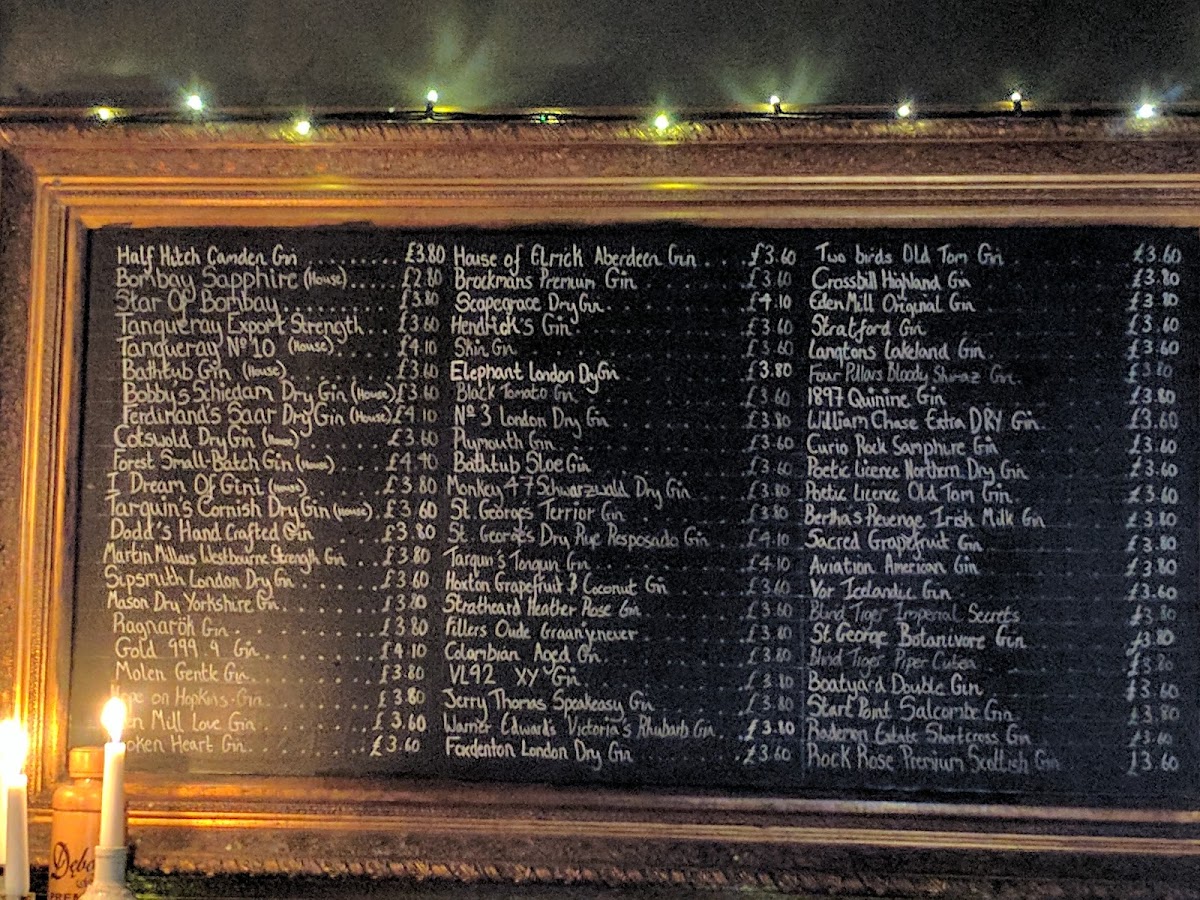 Half Hitch Camden Gin ......... £3.80
Bombay Sapphire (House)..... £2.80
Star Of Bombay............ £3.80
Tanqueray Export Strength... £3.60
Tanqueray Nº10 (House)...... £4.10
Bathtub Gin (House)......... £3.60
Bobby's Schiedam Dry Gin (House) £3.60
Ferdinand's Saar Dry Gin (House) £4.10
Cotswold Dry Gin (House)....... £3.60
Forest Small-Batch Gin (House).... £4.40
I Dream Of Gini (House)....... £3.80
Tarquin's Cornish Dry Gin (House). £3.60
Dodd's Hand Crafted Gin..... £3.80
Martin Millars Westbourne Strength Gin £3.80
Sipsmith London Dry Gin....... £3.60
Mason Dry Yorkshire Gin........ £3.80
Ragnarök Gin.......... £3.80
Gold 999.9 Gin......... £4.10
Molen Gentle Gin......... £3.80
on Hopkins Gin....... £3.80
Mill Love Gin........ £3.60
Heart Gin........ £3.60
House of Elrick Aberdeen Gin.... £3.60
Brockmans Premium Gin...... £3.60
Scapegrace Dry Gin........ £4.10
Hendrick's Gin.......... £3.60
Skin Gin............ £3.60
Elephant London Dry Gin....... £3.80
Black Tomato Gin......... £3.60
Nº 3 London Dry Gin........ £3.80
Plymouth Gin........... £3.60
Bathtub Sloe Gin.......... £3.60
Monkey 47 Schwarzwald Dry Gin.... £3.80
St. Georges Terrior Gin....... £3.80
St. George's Dry Rye Resposado Gin.. £4.10
Tarquin's Tonquin Gin........ £4.10
Hoxton Grapefruit & Coconut Gin.... £3.60
Stratheard Heather Rose Gin..... £3.60
Fillers Oude Graanjenever...... £3.80
Colombian Aged Gin........ £3.80
VL92 XY Gin.......... £3.80
Jerry Thomas Speakeasy Gin..... £3.80
Warner Edwards Victoria's Rhubarb Gin.. £3.80
Foxdenton London Dry Gin...... £3.60
Two birds Old Tom Gin...... £3.60
Crossbill Highland Gin....... £3.80
Eden Mill Original Gin....... £3.80
Stratford Gin........... £3.60
Langtons Lakeland Gin....... £3.60
Four Pillars Bloody Shiraz Gin.... £3.80
1897 Quinine Gin......... £3.80
William Chase Extra DRY Gin.... £3.60
Curio Rock Samphire Gin...... £3.60
Poetic Licence Northern Dry Gin.... £3.60
Poetic Licence Old Tom Gin..... £3.60
Bertha's Revenge Irish Milk Gin... £3.80
Sacred Grapefruit Gin....... £3.80
Aviation American Gin....... £3.80
Vor Icelandic Gin......... £3.60
Blind Tiger Imperial Secrets..... £3.80
St George Botanivore Gin...... £3.80
Blind Tiger Piper Cubeb....... £3.80
Boatyard Double Gin........ £3.60
Start Point Salcombe Gin...... £3.80
Rademon Estate Shortcross Gin.... £3.60
Rock Rose Premium Scottish Gin... £3.60